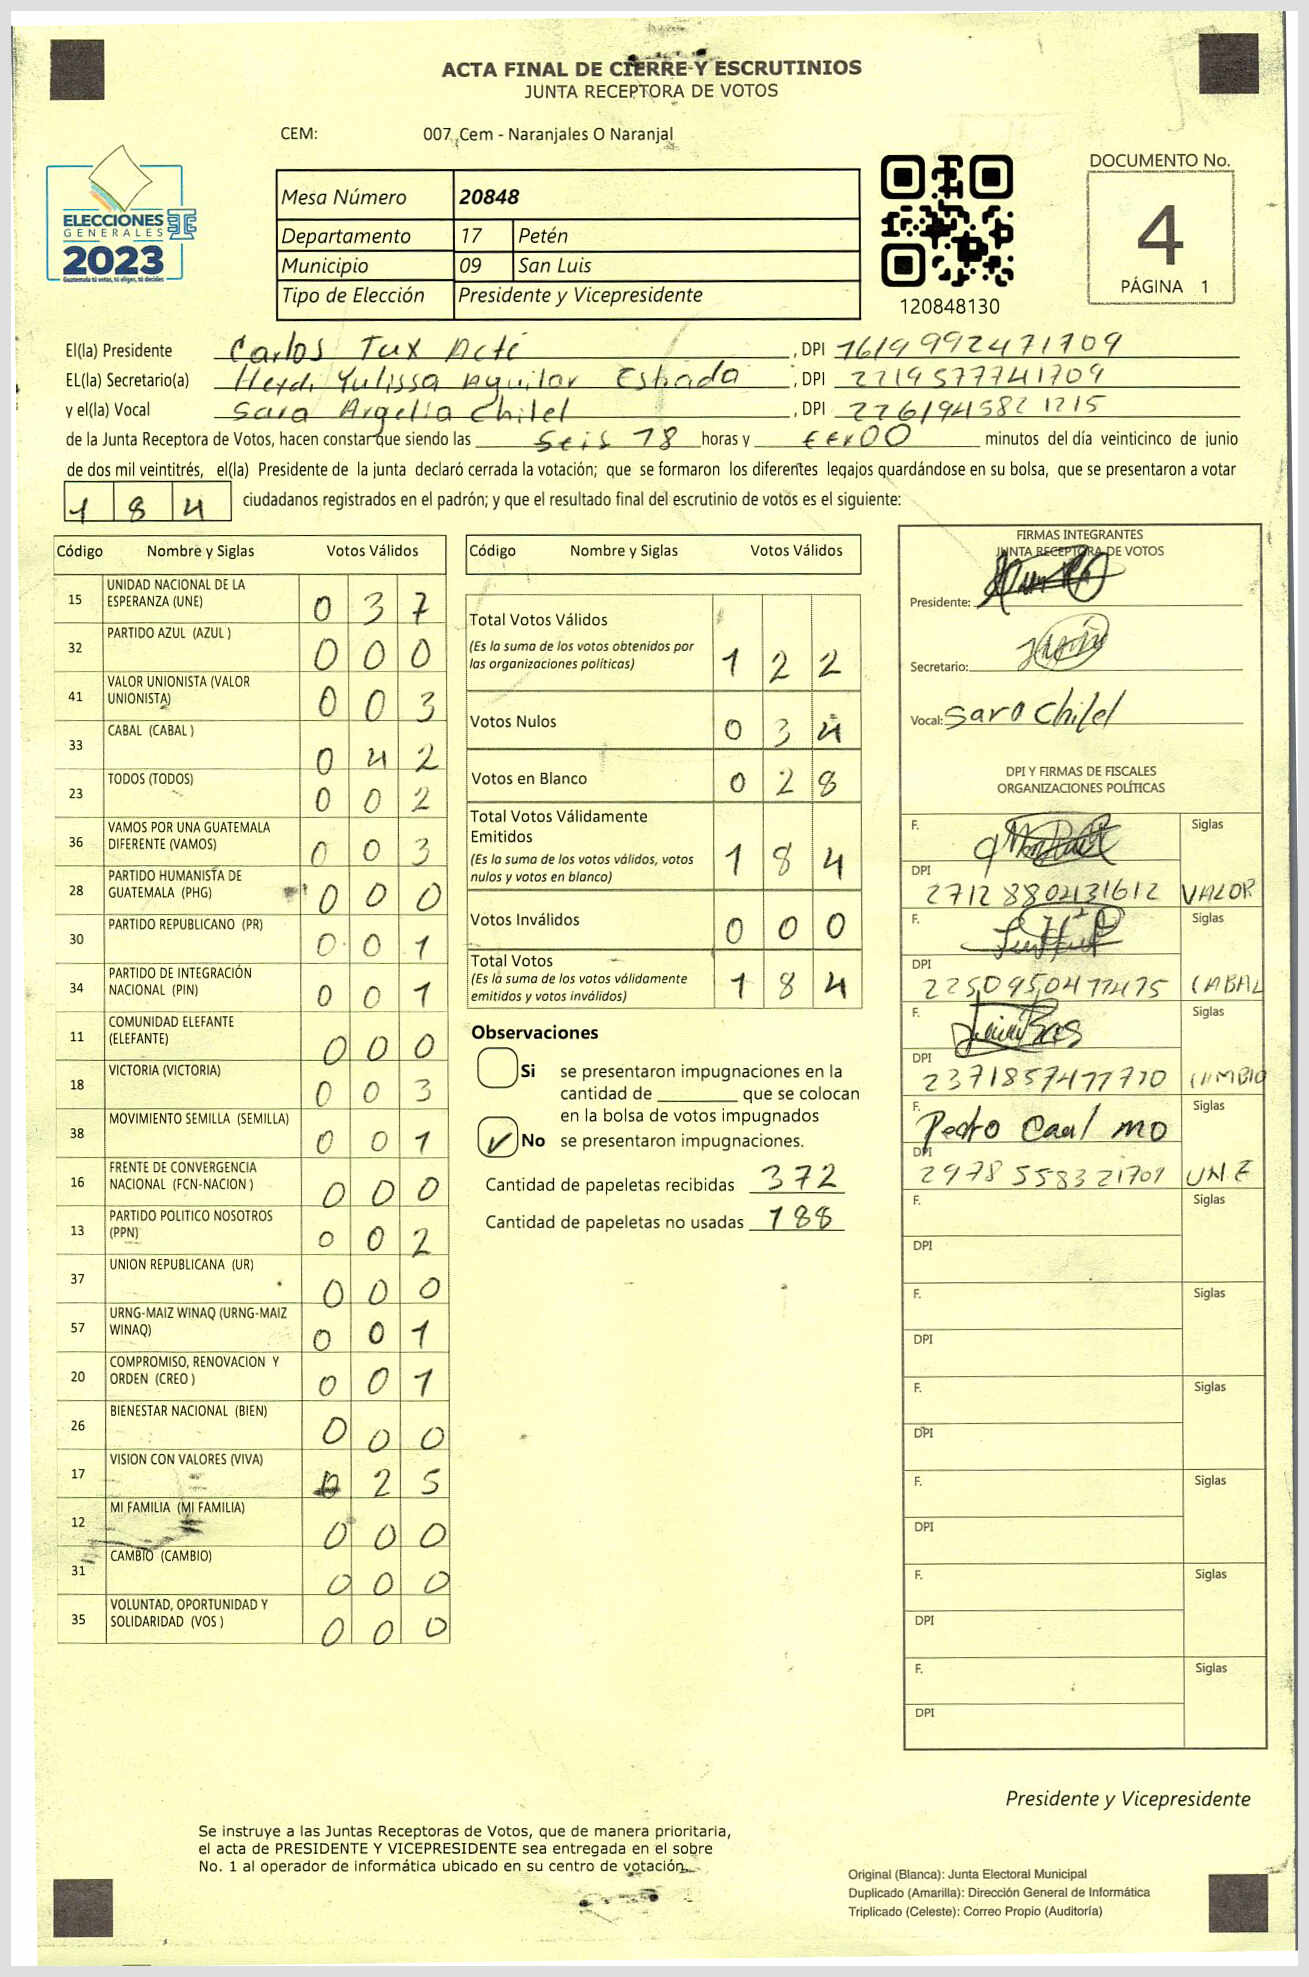 ACTA FINAL DE CIERRE Y ESCRUTINIOS
JUNTA RECEPTORA DE VOTOS
CEM: 007 Cem - Naranjales O Naranjal
ELECCIONES
GENERALES
2023
Guatemala tú votas, tú eliges, tú decides
Mesa Número 20848
Departamento 17 Petén
Municipio 09 San Luis
Tipo de Elección Presidente y Vicepresidente
120848130
DOCUMENTO No.
4
PÁGINA 1
El(la) Presidente Carlos Tux Acté, DPI 1619992471709
EL(la) Secretario(a) Heydi Yulissa Aguilar Estrada, DPI 2219577741709
y el(la) Vocal Sara Argelia Chilel, DPI 2261945821215
de la Junta Receptora de Votos, hacen constar que siendo las seis 18 horas y 00 minutos del día veinticinco de junio
de dos mil veintitrés, el(la) Presidente de la junta declaró cerrada la votación; que se formaron los diferentes legajos quardándose en su bolsa, que se presentaron a votar
184 ciudadanos registrados en el padrón; y que el resultado final del escrutinio de votos es el siguiente:
Código Nombre y Siglas Votos Válidos
15 UNIDAD NACIONAL DE LA ESPERANZA (UNE) 0 3 7
32 PARTIDO AZUL (AZUL ) 0 0 0
41 VALOR UNIONISTA (VALOR UNIONISTA) 0 0 3
33 CABAL (CABAL ) 0 4 2
23 TODOS (TODOS) 0 0 2
36 VAMOS POR UNA GUATEMALA DIFERENTE (VAMOS) 0 0 3
28 PARTIDO HUMANISTA DE GUATEMALA (PHG) 0 0 0
30 PARTIDO REPUBLICANO (PR) 0 0 1
34 PARTIDO DE INTEGRACIÓN NACIONAL (PIN) 0 0 1
11 COMUNIDAD ELEFANTE (ELEFANTE) 0 0 0
18 VICTORIA (VICTORIA) 0 0 3
38 MOVIMIENTO SEMILLA (SEMILLA) 0 0 1
16 FRENTE DE CONVERGENCIA NACIONAL (FCN-NACION ) 0 0 0
13 PARTIDO POLITICO NOSOTROS (PPN) 0 0 2
37 UNION REPUBLICANA (UR) 0 0 0
57 URNG-MAIZ WINAQ (URNG-MAIZ WINAQ) 0 0 1
20 COMPROMISO, RENOVACION Y ORDEN (CREO ) 0 0 1
26 BIENESTAR NACIONAL (BIEN) 0 0 0
17 VISION CON VALORES (VIVA) 0 2 5
12 MI FAMILIA (MI FAMILIA) 0 0 0
31 CAMBIO (CAMBIO) 0 0 0
35 VOLUNTAD, OPORTUNIDAD Y SOLIDARIDAD (VOS ) 0 0 0
Código Nombre y Siglas Votos Válidos
Total Votos Válidos
(Es la suma de los votos obtenidos por
las organizaciones políticas) 1 2 2
Votos Nulos 0 3 4
Votos en Blanco 0 2 8
Total Votos Válidamente
Emitidos
(Es la suma de los votos válidos, votos
nulos y votos en blanco) 1 8 4
Votos Inválidos 0 0 0
Total Votos
(Es la suma de los votos válidamente
emitidos y votos inválidos) 1 8 4
Observaciones
Si se presentaron impugnaciones en la
cantidad de ________ que se colocan
en la bolsa de votos impugnados
No se presentaron impugnaciones.
Cantidad de papeletas recibidas 372
Cantidad de papeletas no usadas 188
FIRMAS INTEGRANTES
JUNTA RECEPTORA DE VOTOS
Presidente:
Secretario:
Vocal: Sara Chilel
DPI Y FIRMAS DE FISCALES
ORGANIZACIONES POLÍTICAS
F. Siglas
DPI 2712880231612 VALOR
F. Siglas
DPI CABAL
F. Siglas
DPI 2371857477710
F. Pedro Caal MO Siglas
DPI 2978558321709 UNE
F. Siglas
DPI
F. Siglas
DPI
F. Siglas
DPI
F. Siglas
DPI
F. Siglas
DPI
F. Siglas
DPI
Presidente y Vicepresidente
Se instruye a las Juntas Receptoras de Votos, que de manera prioritaria,
el acta de PRESIDENTE Y VICEPRESIDENTE sea entregada en el sobre
No. 1 al operador de informática ubicado en su centro de votación.
Original (Blanca): Junta Electoral Municipal
Duplicado (Amarilla): Dirección General de Informática
Triplicado (Celeste): Correo Propio (Auditoría)